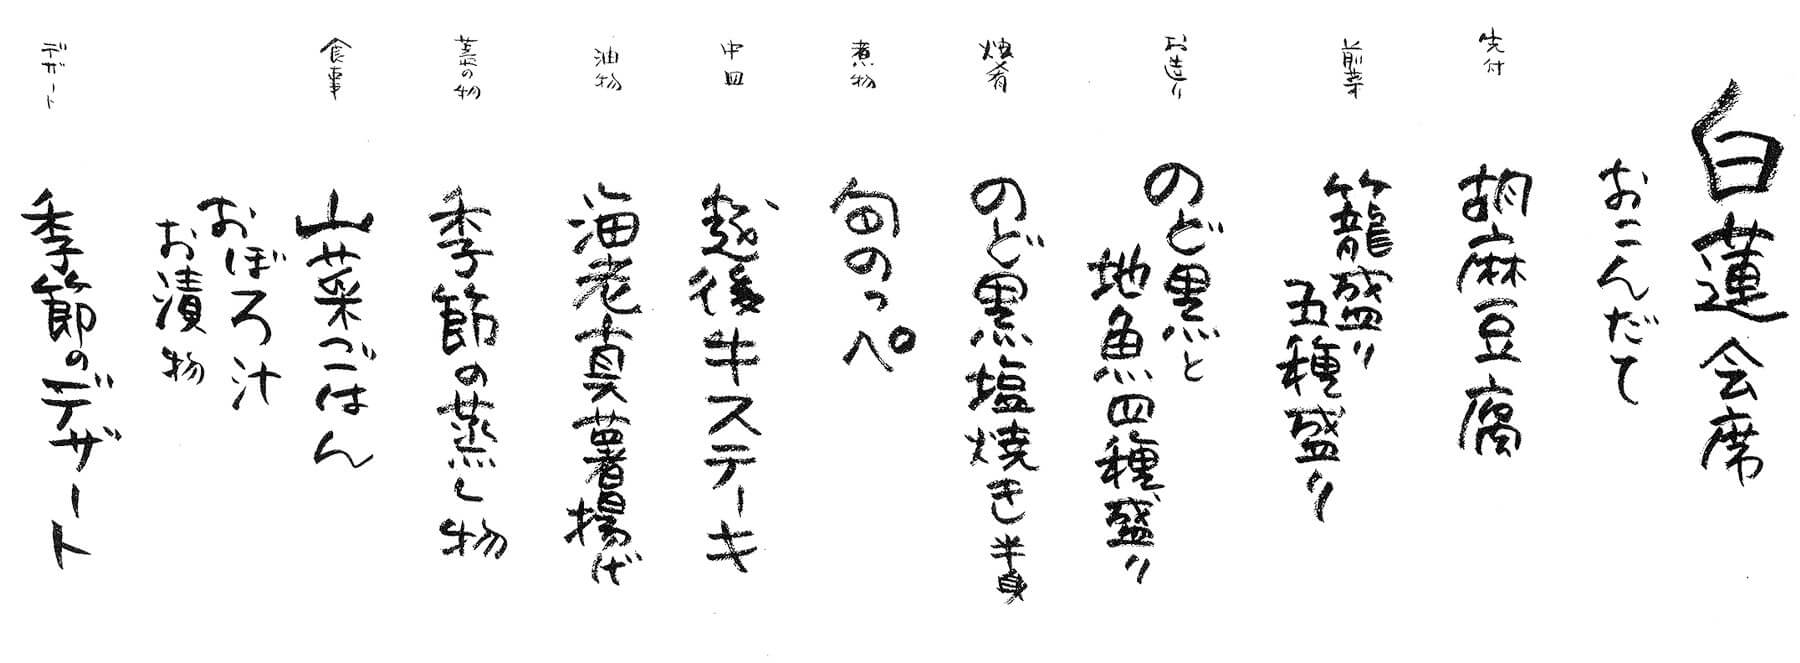 白蓮会席
おこんだて
先付
胡麻豆腐
前菜
籠盛り
五種盛り
お造り
のど黒と
地魚四種盛り
焼肴
のど黒塩焼き 半身
煮物
旬のっぺ
中皿
越後牛ステーキ
油物
海老真薯揚げ
蒸の物
季節の蒸し物
食事
山菜ごはん
おぼろ汁
お漬物
デザート
季節のデザート